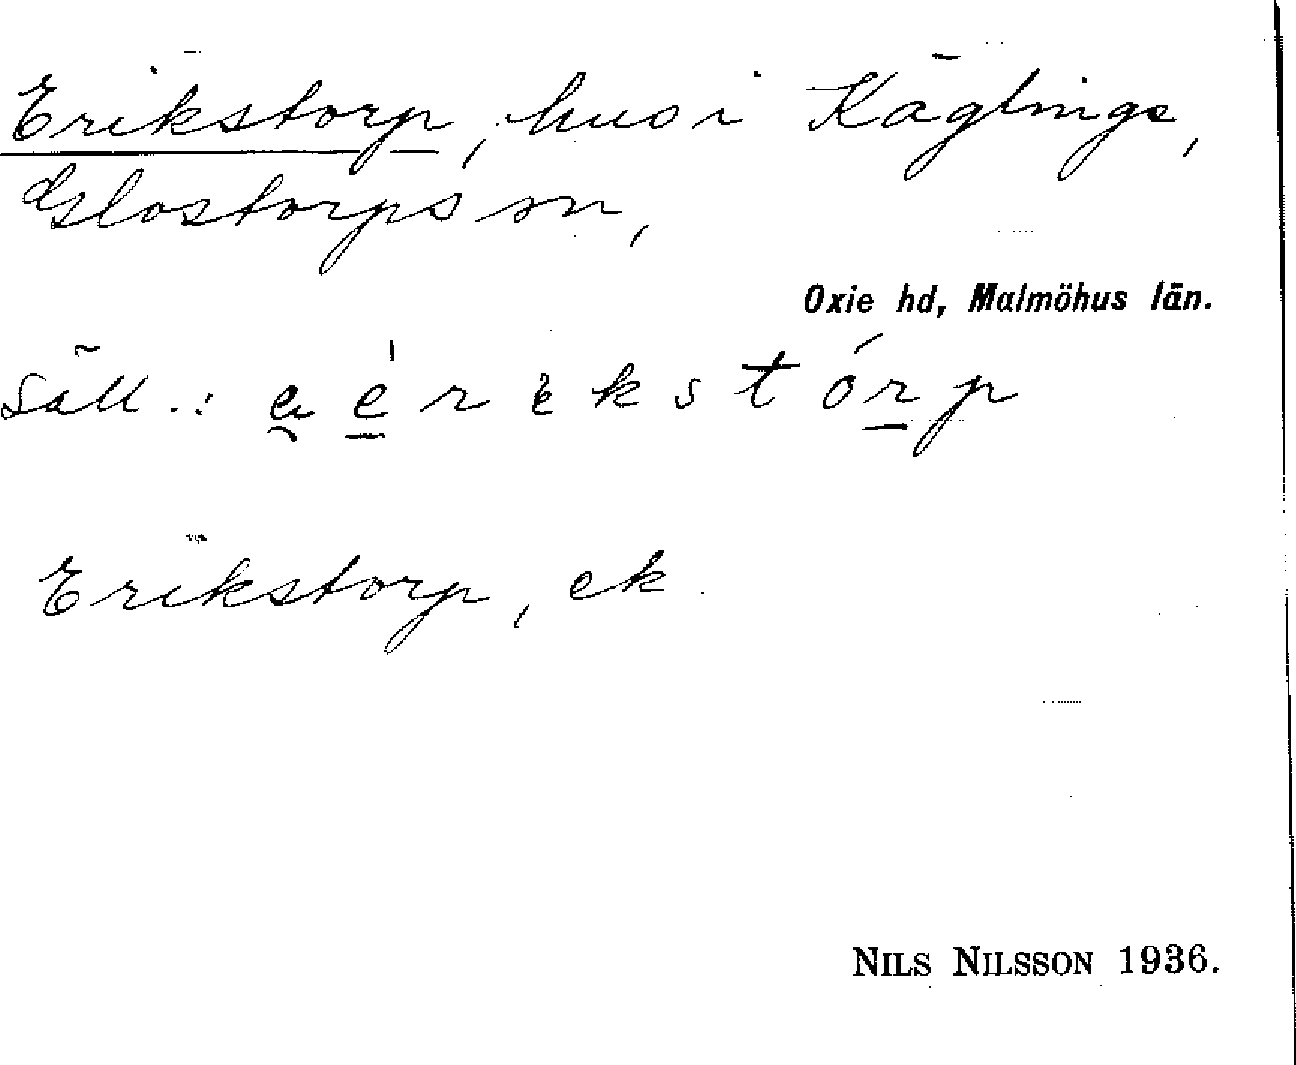 Erikstorp, hus i Käglinge,
Glostorps sn,
Oxie hd, Malmöhus län.
Säll.:
Erikstorp, ek.
NILS NILSSON 1936.